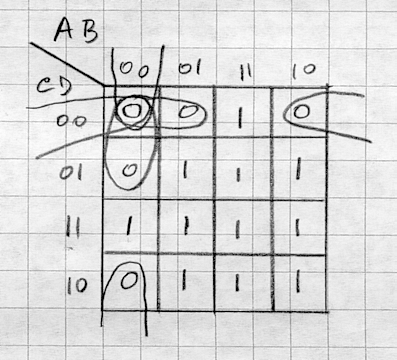 AB
00 01 11 10
CD
00 0 0 1 0
01 0 1 1 1
11 1 1 1 1
10 0 1 1 1